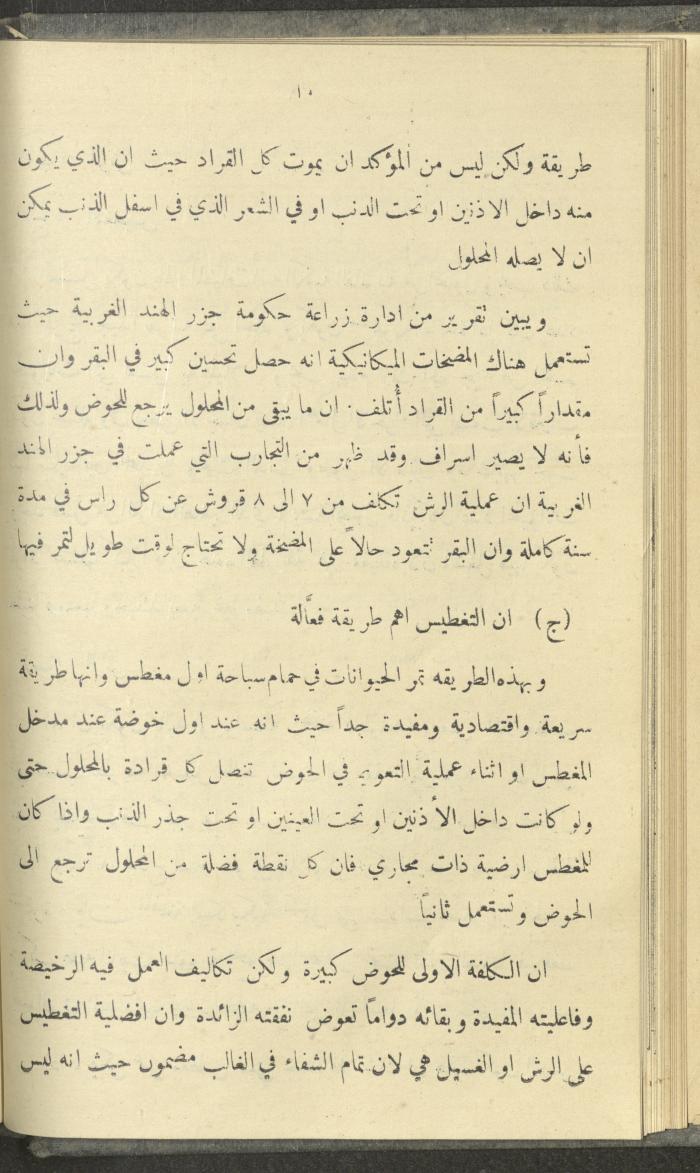 ١٠
طريقة ولكن ليس من المؤكد ان يموت كل القراد حيث ان الذي يكون
منه داخل الاذنين او تحت الذنب او في الشعر الذي في اسفل الذنب يمكن
ان لا يصله المحلول
ويبين تقرير من ادارة زراعة حكومة جزر الهند الغربية حيث
تستعمل هناك المضخات الميكانيكية انه حصل تحسين كبير في البقر وان
مقداراً كبيراً من القراد أُتلف . ان ما يبقى من المحلول يرجع للحوض ولذلك
فأنه لا يصير اسراف وقد ظهر من التجارب التي عملت في جزر الهند
الغربية ان عملية الرش تكلف من ٧ الى ٨ قروش عن كل راس في مدة
سنة كاملة وان البقر تتعود حالاً على المضخة ولا تحتاج لوقت طويل لتمر فيها
(ج) ان التغطيس اهم طريقة فعَّالة
وبهذه الطريقه تمر الحيوانات في حمام سباحة اول مغطس وانها طريقة
سريعة واقتصادية ومفيدة جداً حيث انه عند اول خوضة عند مدخل
المغطس او اثناء عملية التعويم في الحوض تتصل كل قرادة بالمحلول حتى
ولو كانت داخل الأذنين او تحت العينين او تحت جذر الذنب واذا كان
للمغطس ارضية ذات مجاري فان كل نقطة فضلة من المحلول ترجع الى
الحوض وتستعمل ثانيًا
ان الكلفة الاولى للحوض كبيرة ولكن تكاليف العمل فيه الرخيصة
وفاعليته المفيدة وبقائه دواماً تعوض نفقته الزائدة وان افضلية التغطيس
على الرش او الغسيل هي لان تمام الشفاء في الغالب مضمون حيث انه ليس